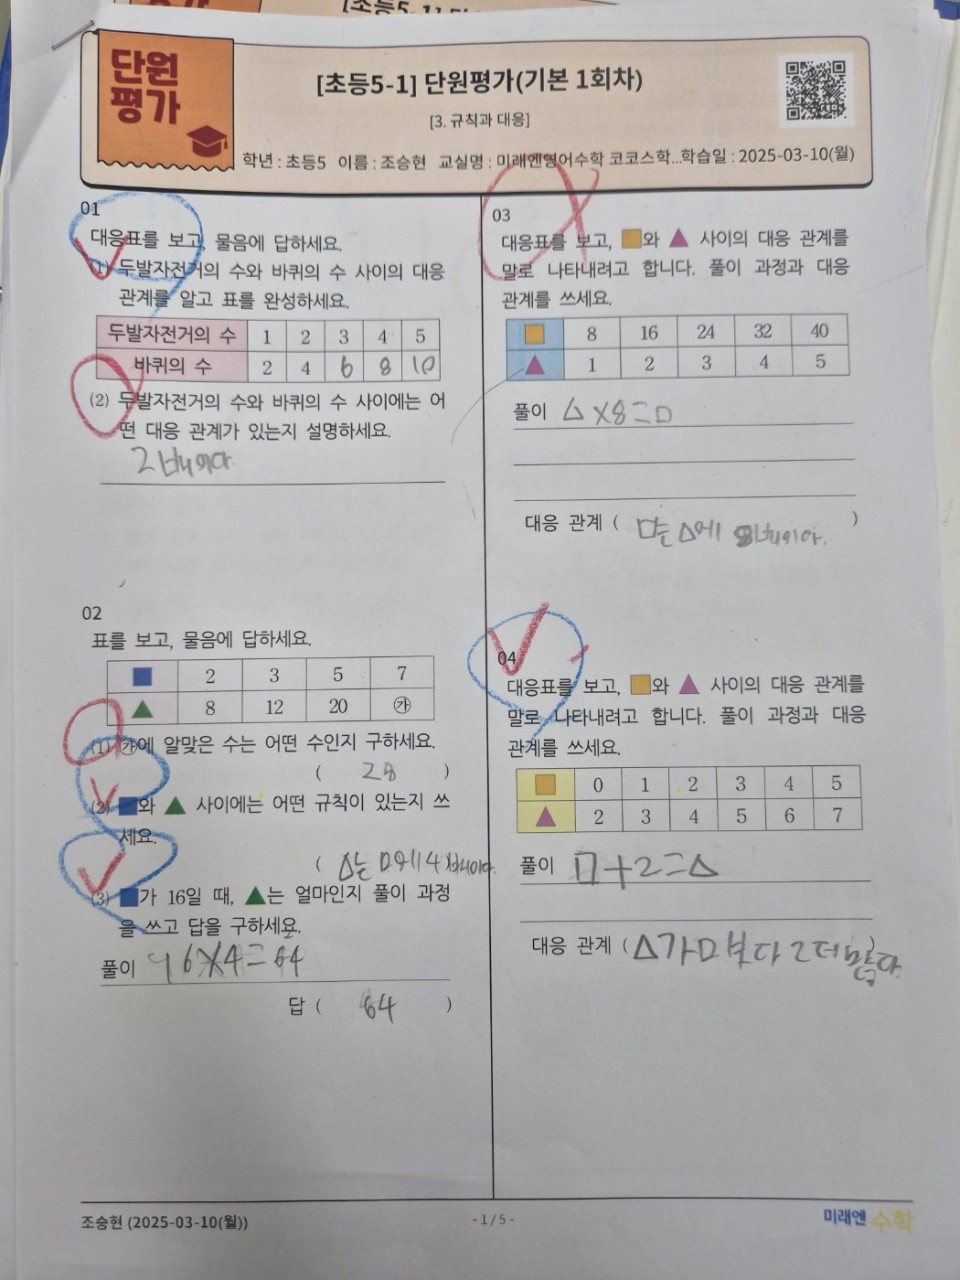 [초등5-1] 단
단원
평가
[초등5-1] 단원평가(기본 1회차)
[3. 규칙과 대응]
학년 : 초등5 이름 : 조승현 교실명 : 미래엔영어수학 코코스학...학습일 : 2025-03-10(월)
01
대응표를 보고, 물음에 답하세요.
(1) 두발자전거의 수와 바퀴의 수 사이의 대응
관계를 알고 표를 완성하세요.
두발자전거의 수 1 2 3 4 5
바퀴의 수 2 4 6 8 10
(2) 두발자전거의 수와 바퀴의 수 사이에는 어
떤 대응 관계가 있는지 설명하세요.
2배이다.
02
표를 보고, 물음에 답하세요.
■ 2 3 5 7
▲ 8 12 20 ㉮
(1) ㉮에 알맞은 수는 어떤 수인지 구하세요.
( 28 )
(2) ■와 ▲ 사이에는 어떤 규칙이 있는지 쓰
세요.
( △는 □에 4배이다. )
(3) ■가 16일 때, ▲는 얼마인지 풀이 과정
을 쓰고 답을 구하세요.
풀이 16×4=64
답 ( 64 )
03
대응표를 보고, ■와 ▲ 사이의 대응 관계를
말로 나타내려고 합니다. 풀이 과정과 대응
관계를 쓰세요.
■ 8 16 24 32 40
▲ 1 2 3 4 5
풀이 △×8=□
대응 관계 ( □는 △에 8배이다. )
04
대응표를 보고, ■와 ▲ 사이의 대응 관계를
말로 나타내려고 합니다. 풀이 과정과 대응
관계를 쓰세요.
■ 0 1 2 3 4 5
▲ 2 3 4 5 6 7
풀이 □+2=△
대응 관계 ( △가 □보다 2 더 많다. )
조승현 (2025-03-10(월))
- 1 / 5 -
미래엔 수학